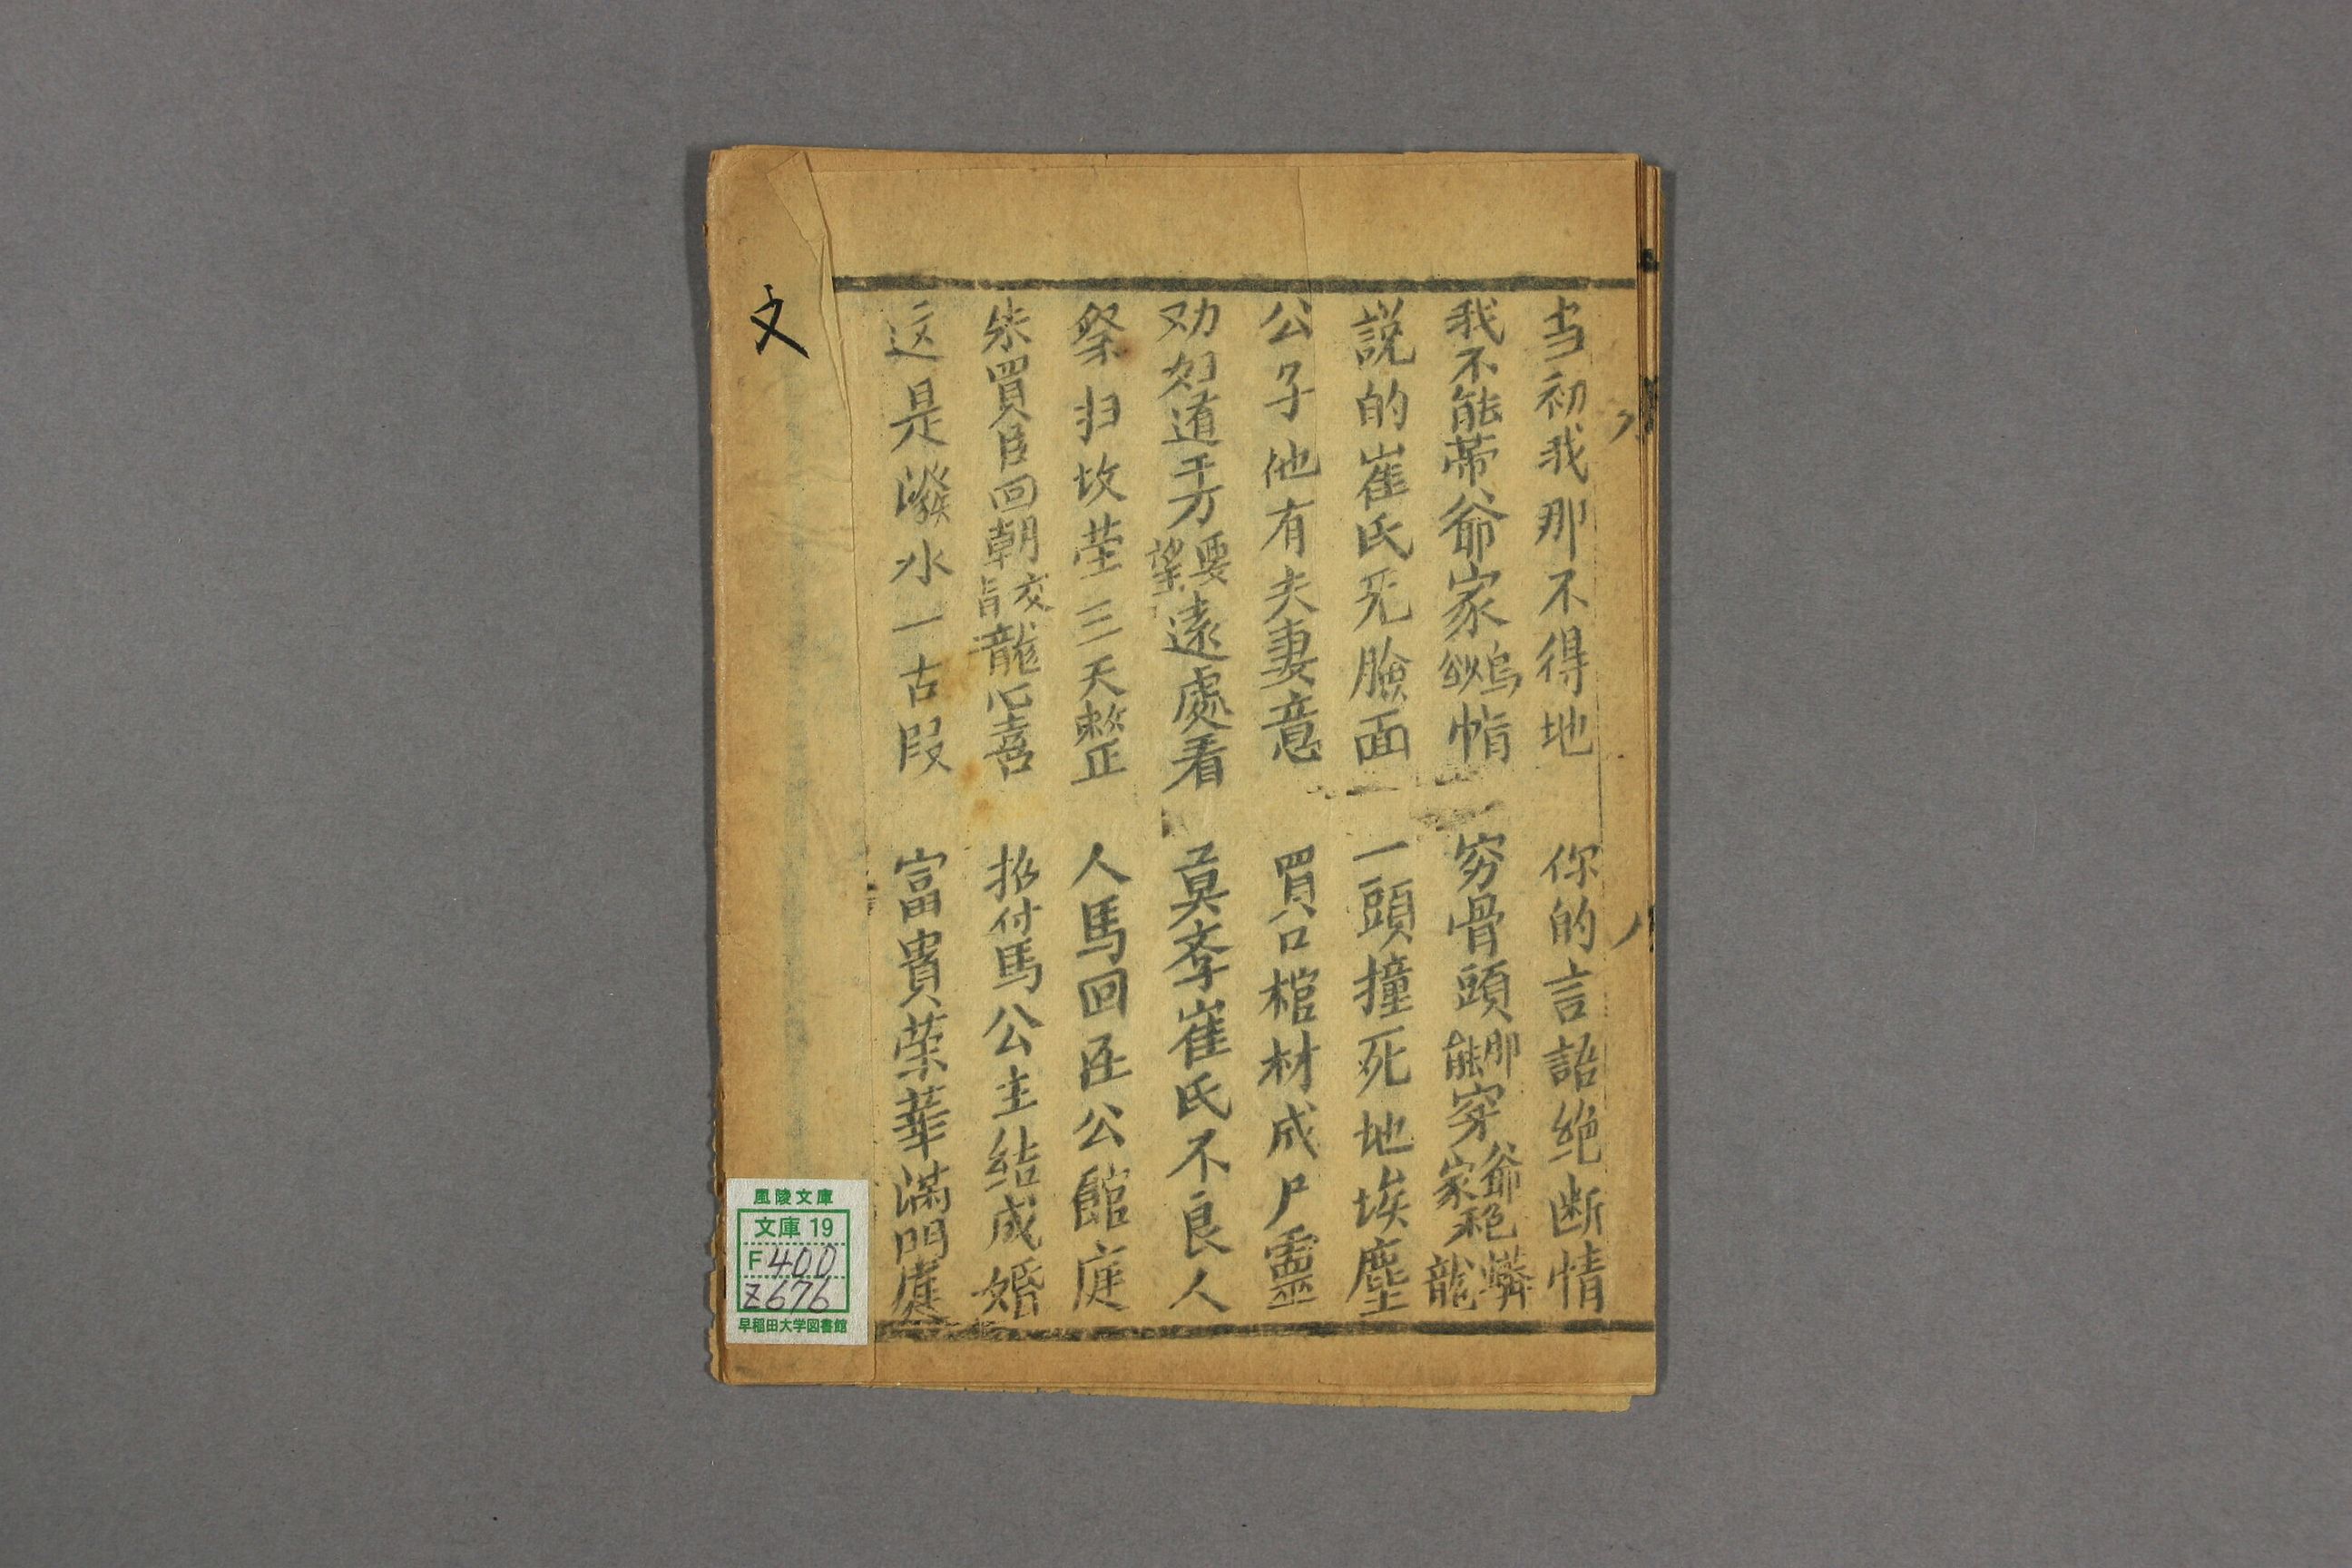 当初我那不得地　你的言語绝断情
我不能帯爺家烏紗帽　穷骨頭那能穿爺家袍蟒龍
説的崔氏死臉面　一頭撞死地埃塵
公子他有夫妻意　買口棺材成尸靈
劝妇道千万要望遠處看　莫孝崔氏不良人
祭扫坟茔三天整　人馬回在公館庭
朱買臣回朝交旨龍心喜　招付馬公主结成婚
这是潑水一古段　富貴荣華满門庭
文
風陵文庫
文庫 19
F400
Z676
早稲田大学図書館